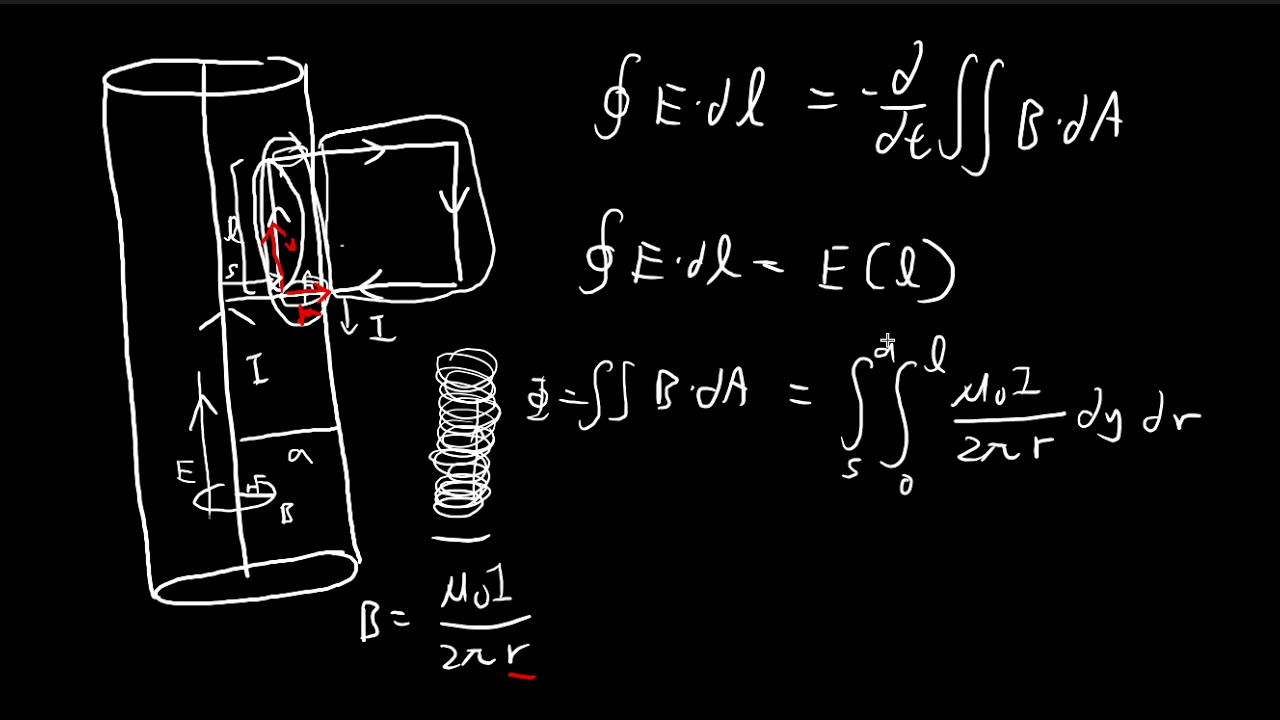 ∮ E·dl = -d/dt ∬ B·dA
∮ E·dl = E(l)
Φ = ∬ B·dA = ∫_s^a ∫_0^l μ₀I/2πr dy dr
B = μ₀I/2πr
l
s
r
I
I
a
E
r
B